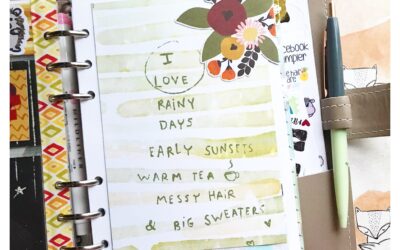 I
LOVE
RAINY
DAYS
EARLY SUNSETS
WARM TEA
MESSY HAIR
& BIG SWEATERS